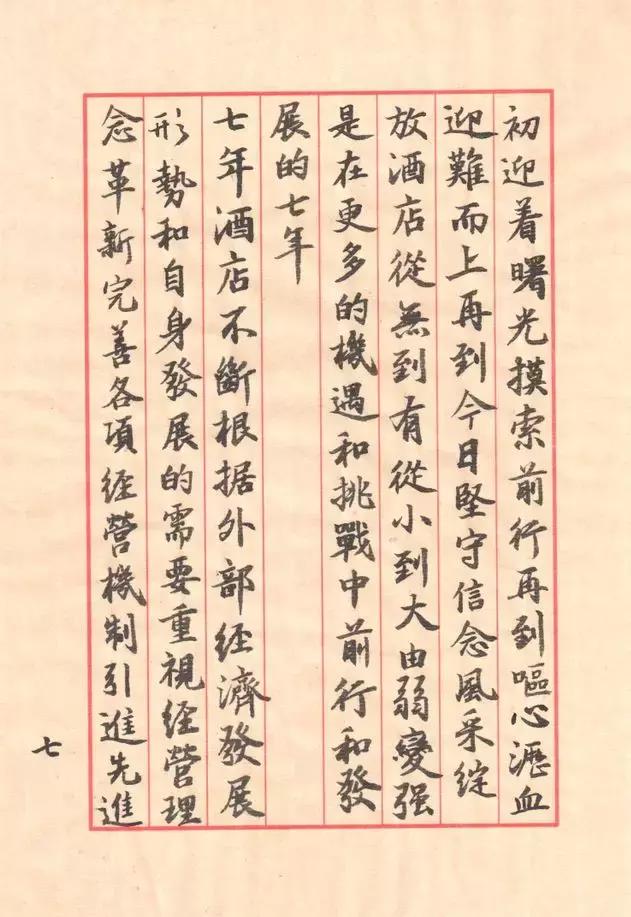 初迎着曙光摸索前行再到嘔心瀝血
迎難而上再到今日堅守信念風采綻
放酒店從無到有從小到大由弱變强
是在更多的機遇和挑戰中前行和發
展的七年
七年酒店不斷根据外部經濟發展
形勢和自身發展的需要重視經營理
念革新完善各項經營機制引進先進
七